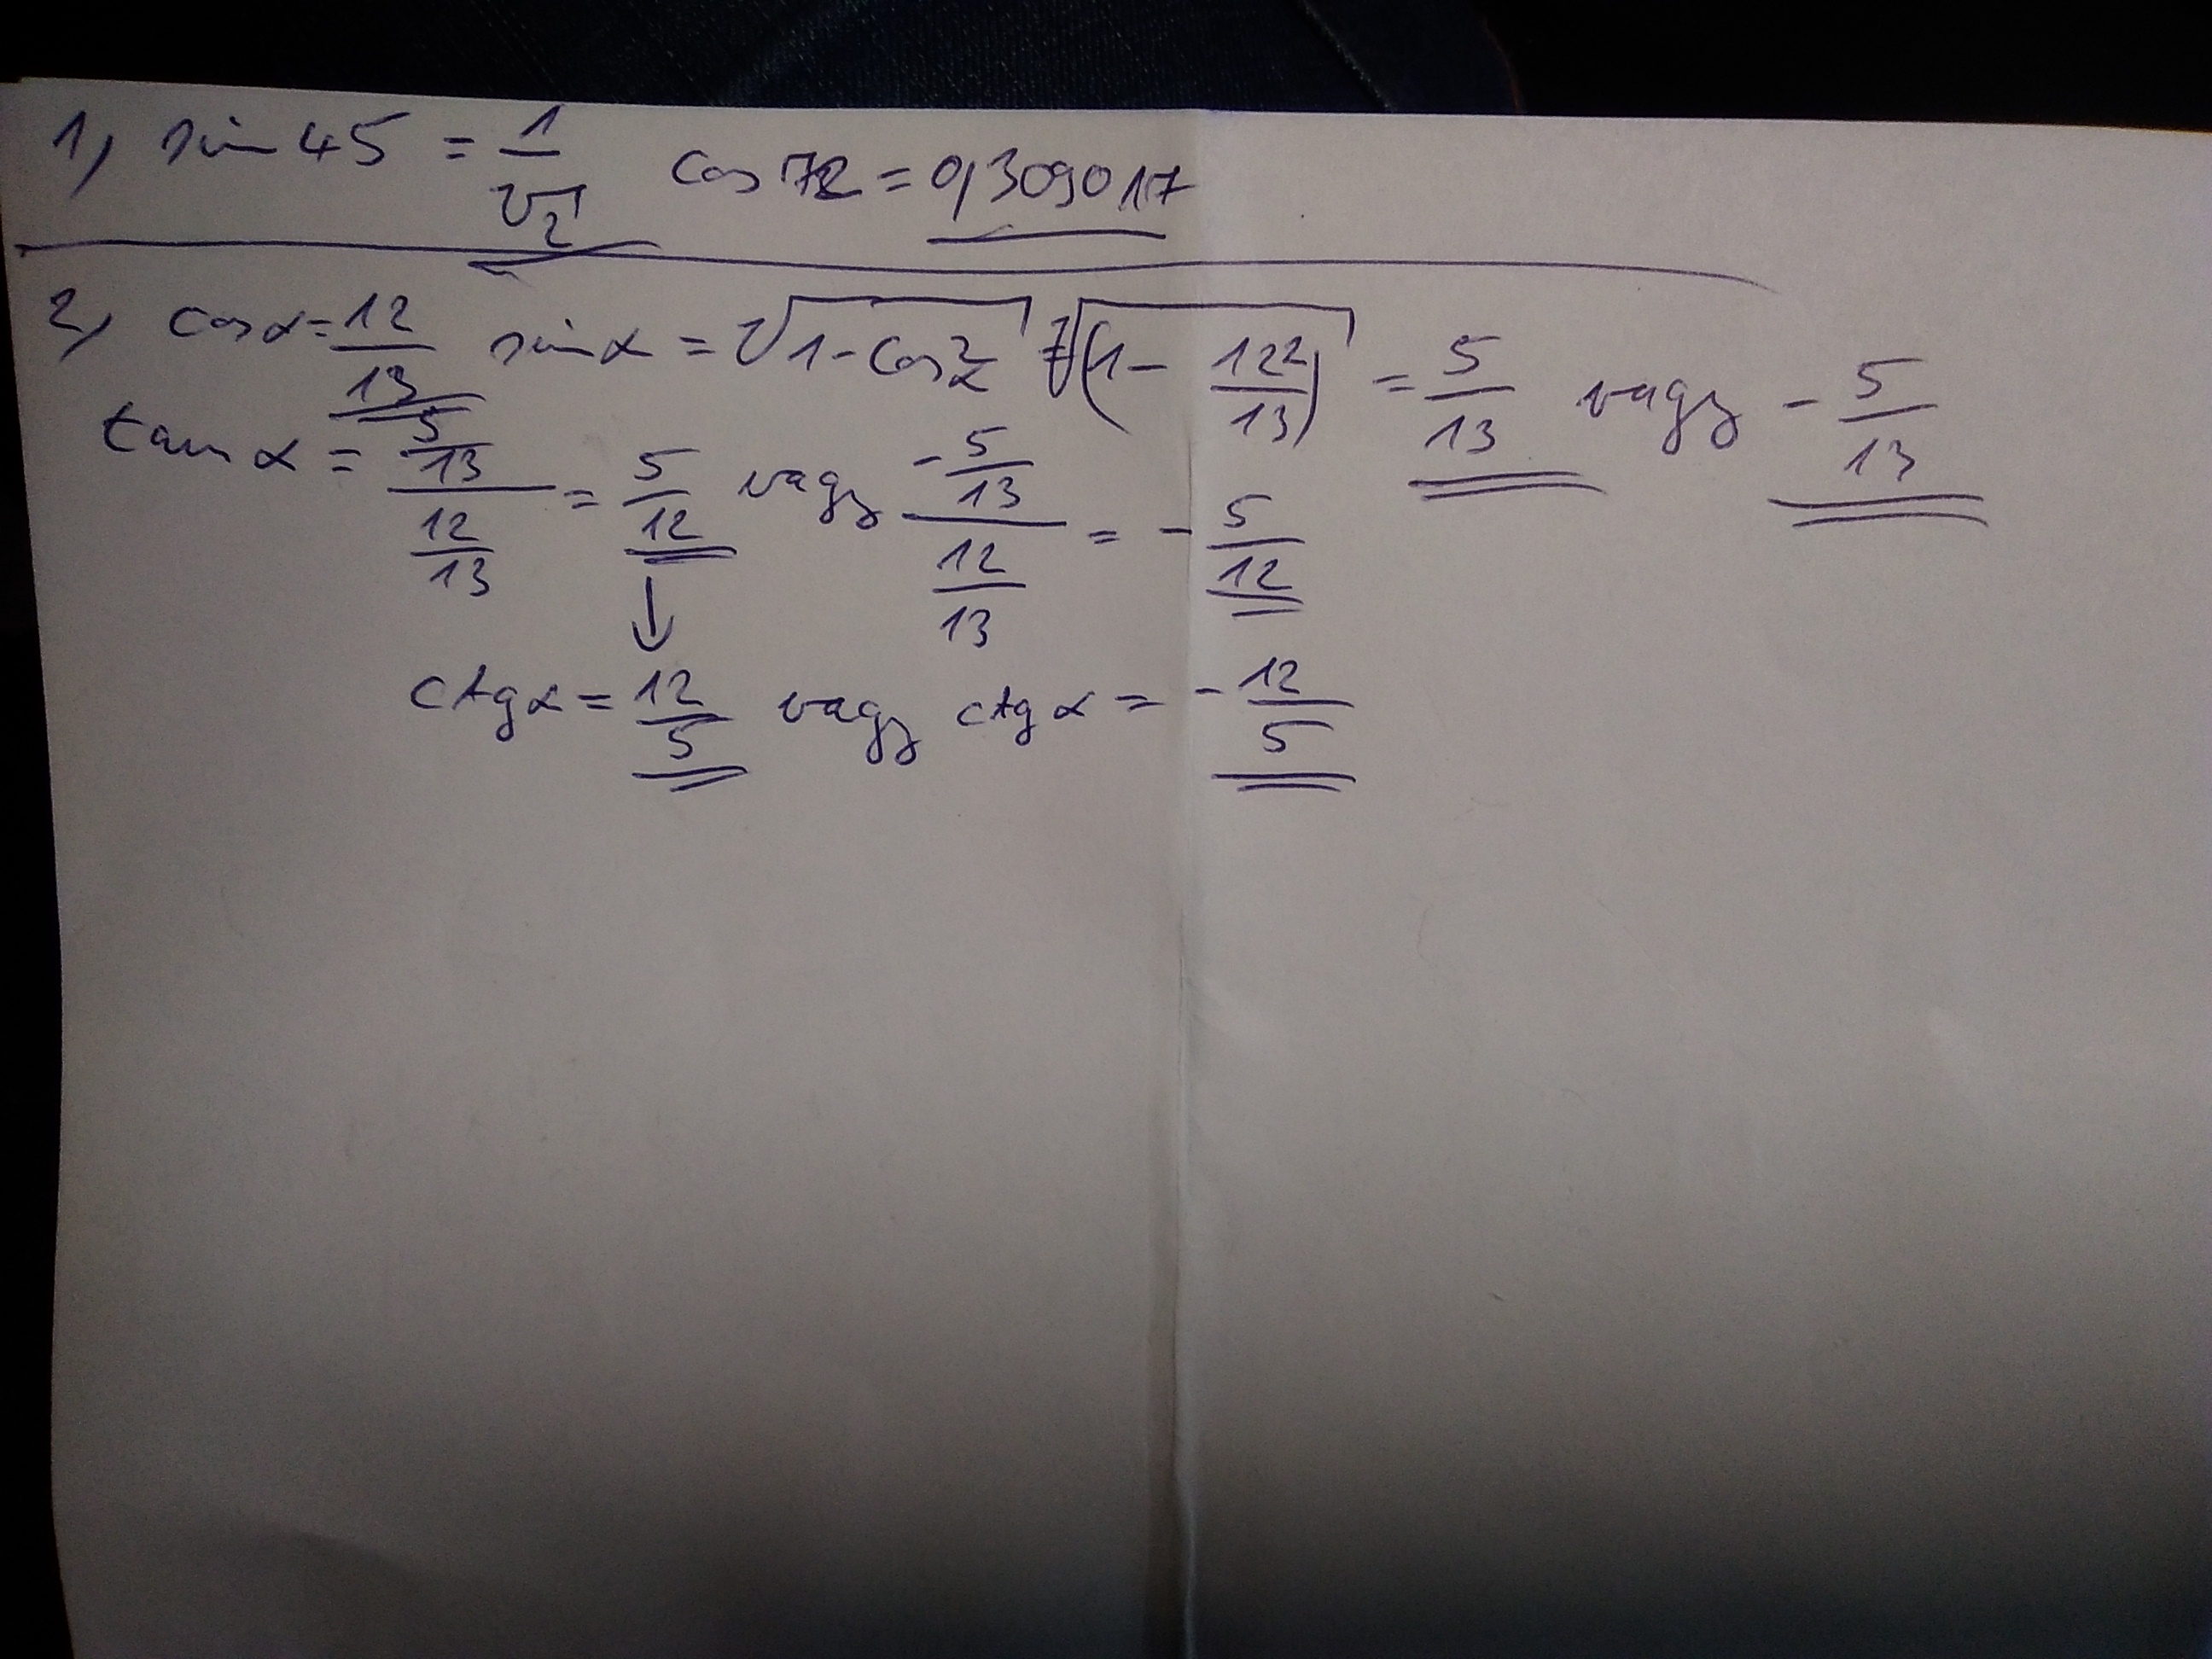 1, sin 45 = 1/√2 cos 72 = 0,309017
2, cos α = 12/13 sin α = √(1 - cos²α) = √(1 - 12²/13) = 5/13 vagy - 5/13
tan α = (5/13)/(12/13) = 5/12 vagy (-5/13)/(12/13) = - 5/12
↓
ctg α = 12/5 vagy ctg α = - 12/5